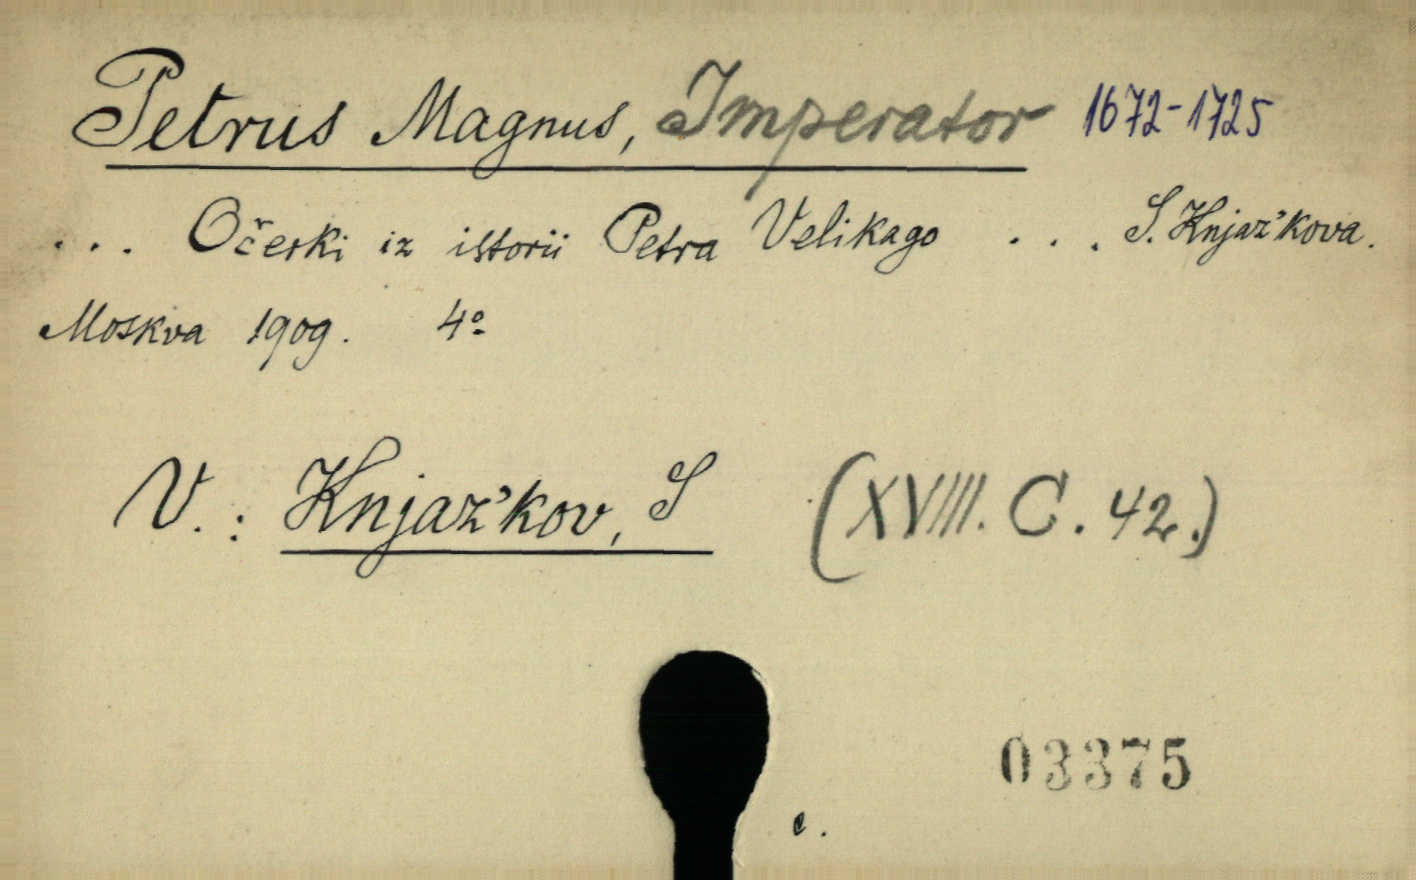 Petrus Magnus, Imperator 1672-1725
... Očerki iz istorii Petra Velikago ... S. Knjaz'kova.
Moskva 1909. 4º
V.: Knjaz'kov, S (XVIII. C. 42.)
03375
c.